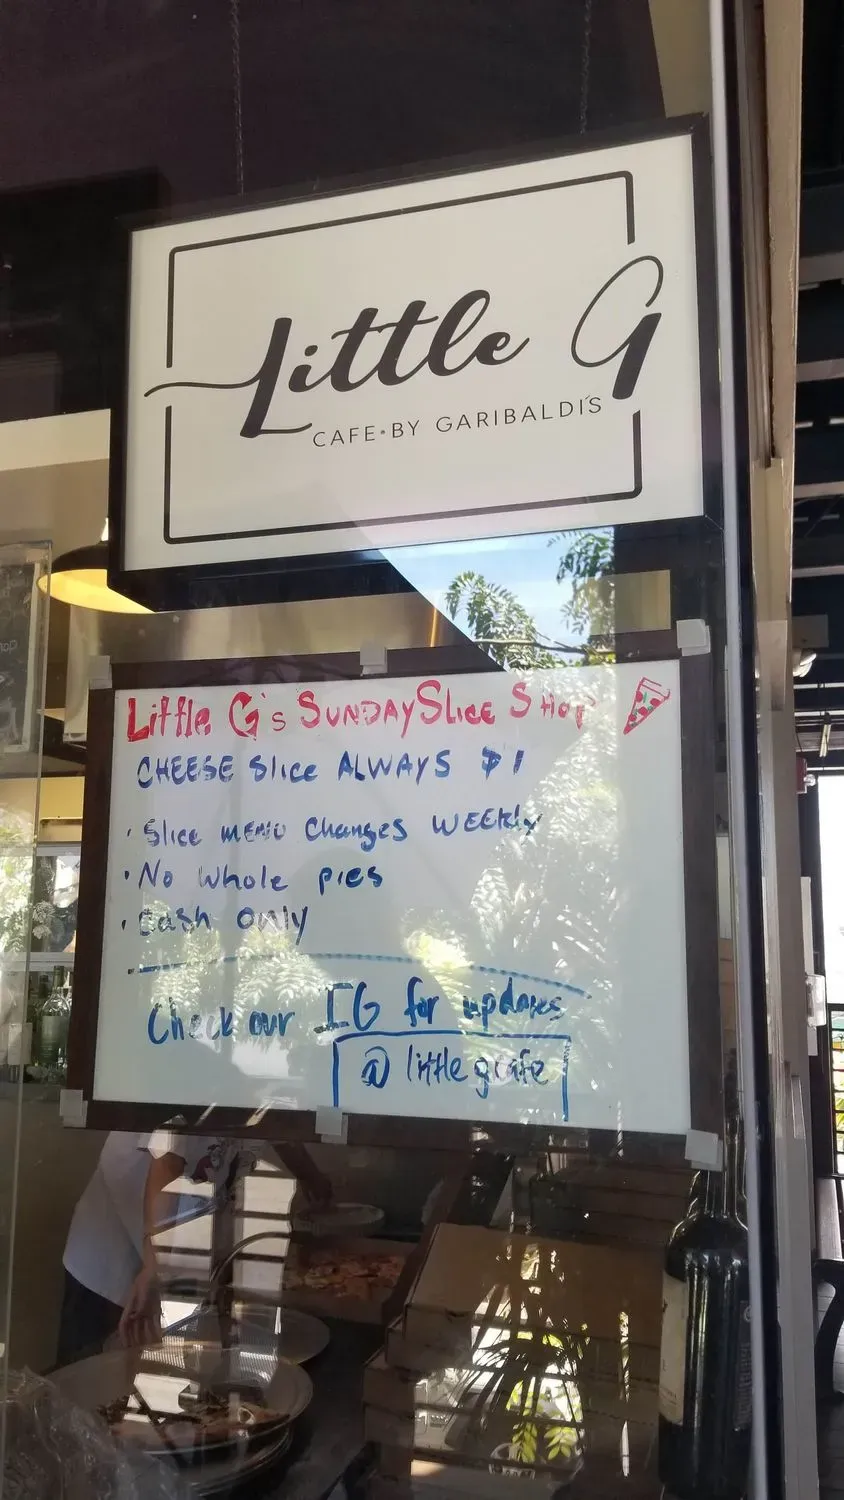 Little G
CAFE•BY GARIBALDI'S
Little G's SUNDAY Slice SHOP
CHEESE Slice ALWAYS $1
• Slice MENU Changes WEEKly
• No Whole pies
• Cash Only
Check our IG for updates
@littlegcafe